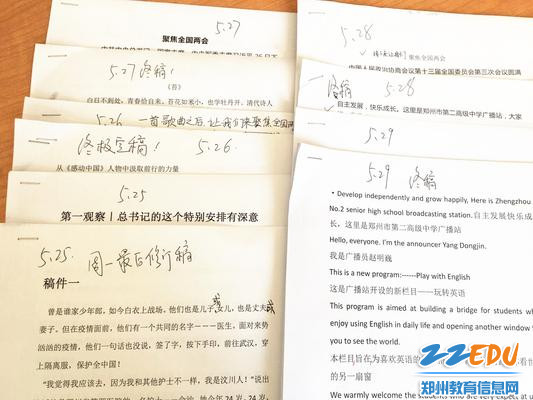 5.27
聚焦全国两会
5.27终稿!
《苔》
白日不到处,青春恰自来。苔花如米小,也学牡丹开。清代诗人
5.26 一首歌曲之后,让我们来聚焦全国两
终极定稿! 5.26.
从《感动中国》人物中汲取前行的力量
5.25
第一观察丨总书记的这个特别安排有深意
5.25. 周一最后修订稿
稿件一
曾是谁家少年郎,如今白衣上战场。他们也是儿子女儿,也是丈夫
妻子。但在疫情面前,他们有一个共同的名字---医生,面对来势
汹汹的疫情,他们一句话也没说,签了字,按下手印,前往武汉,穿
上隔离服,保护全中国!
“我觉得我应该去,因为我和其他护士不一样,我是汶川人!”说出
5.28
聚焦全国两会
中国人民政治协商会议第十三届全国委员会第三次会议圆满
终稿 5.28
自主发展,快乐成长,这里是郑州市第二高级中学广播站,大家
5.29
5.29 终稿
• Develop independently and grow happily, Here is Zhengzhou
No.2 senior high school broadcasting station.自主发展快乐成
长,这里是郑州市第二高级中学广播站
Hello, everyone. I'm the announcer Yang Dongjin.
我是广播员赵明巍
This is a new program:------Play with English
这是广播站开设的新栏目——玩转英语
This program is aimed at building a bridge for students wh
enjoy using English in daily life and opening another window
you to see the world.
本栏目旨在为喜欢英语的
的另一扇窗
We warmly welcome the students who are very expert at u
22EDU
郑州教育信息网